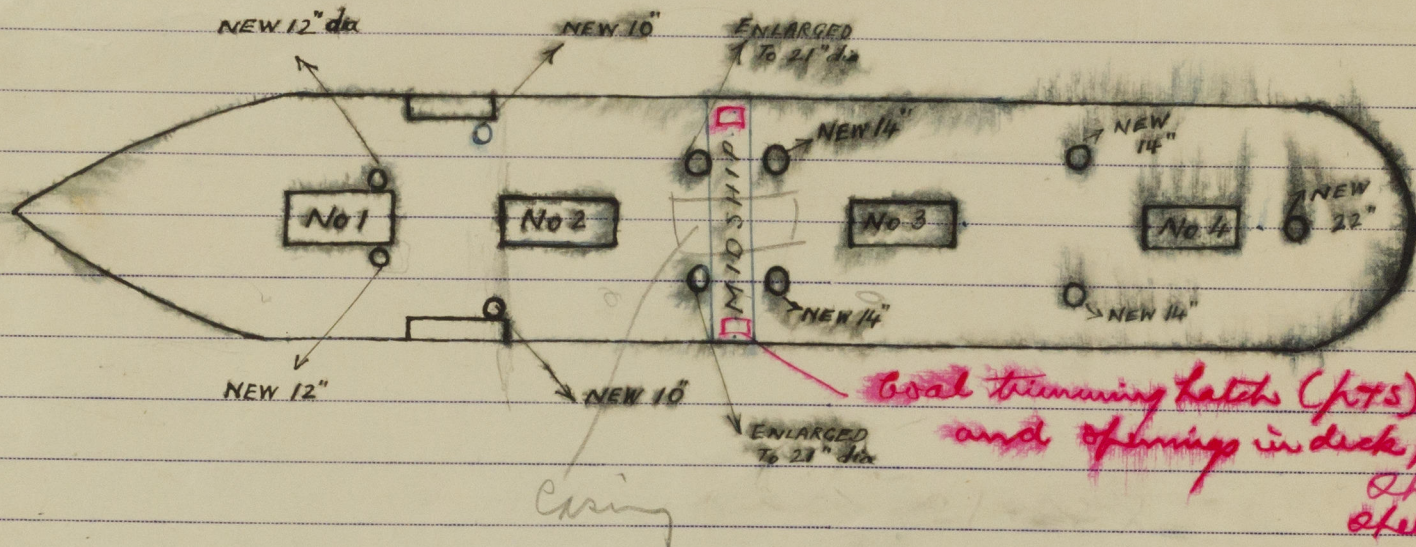 NEW 12" dia
NEW 10"
ENLARGED
To 21" dia
NEW 14"
NEW
14"
NEW
22"
No 1
No 2
MIDSHIP.
No 3
No 4
NEW 14"
NEW 14"
NEW 12"
NEW 10"
ENLARGED
To 21" dia
Coal trimming hatch (p+s)
and openings in deck
Casing